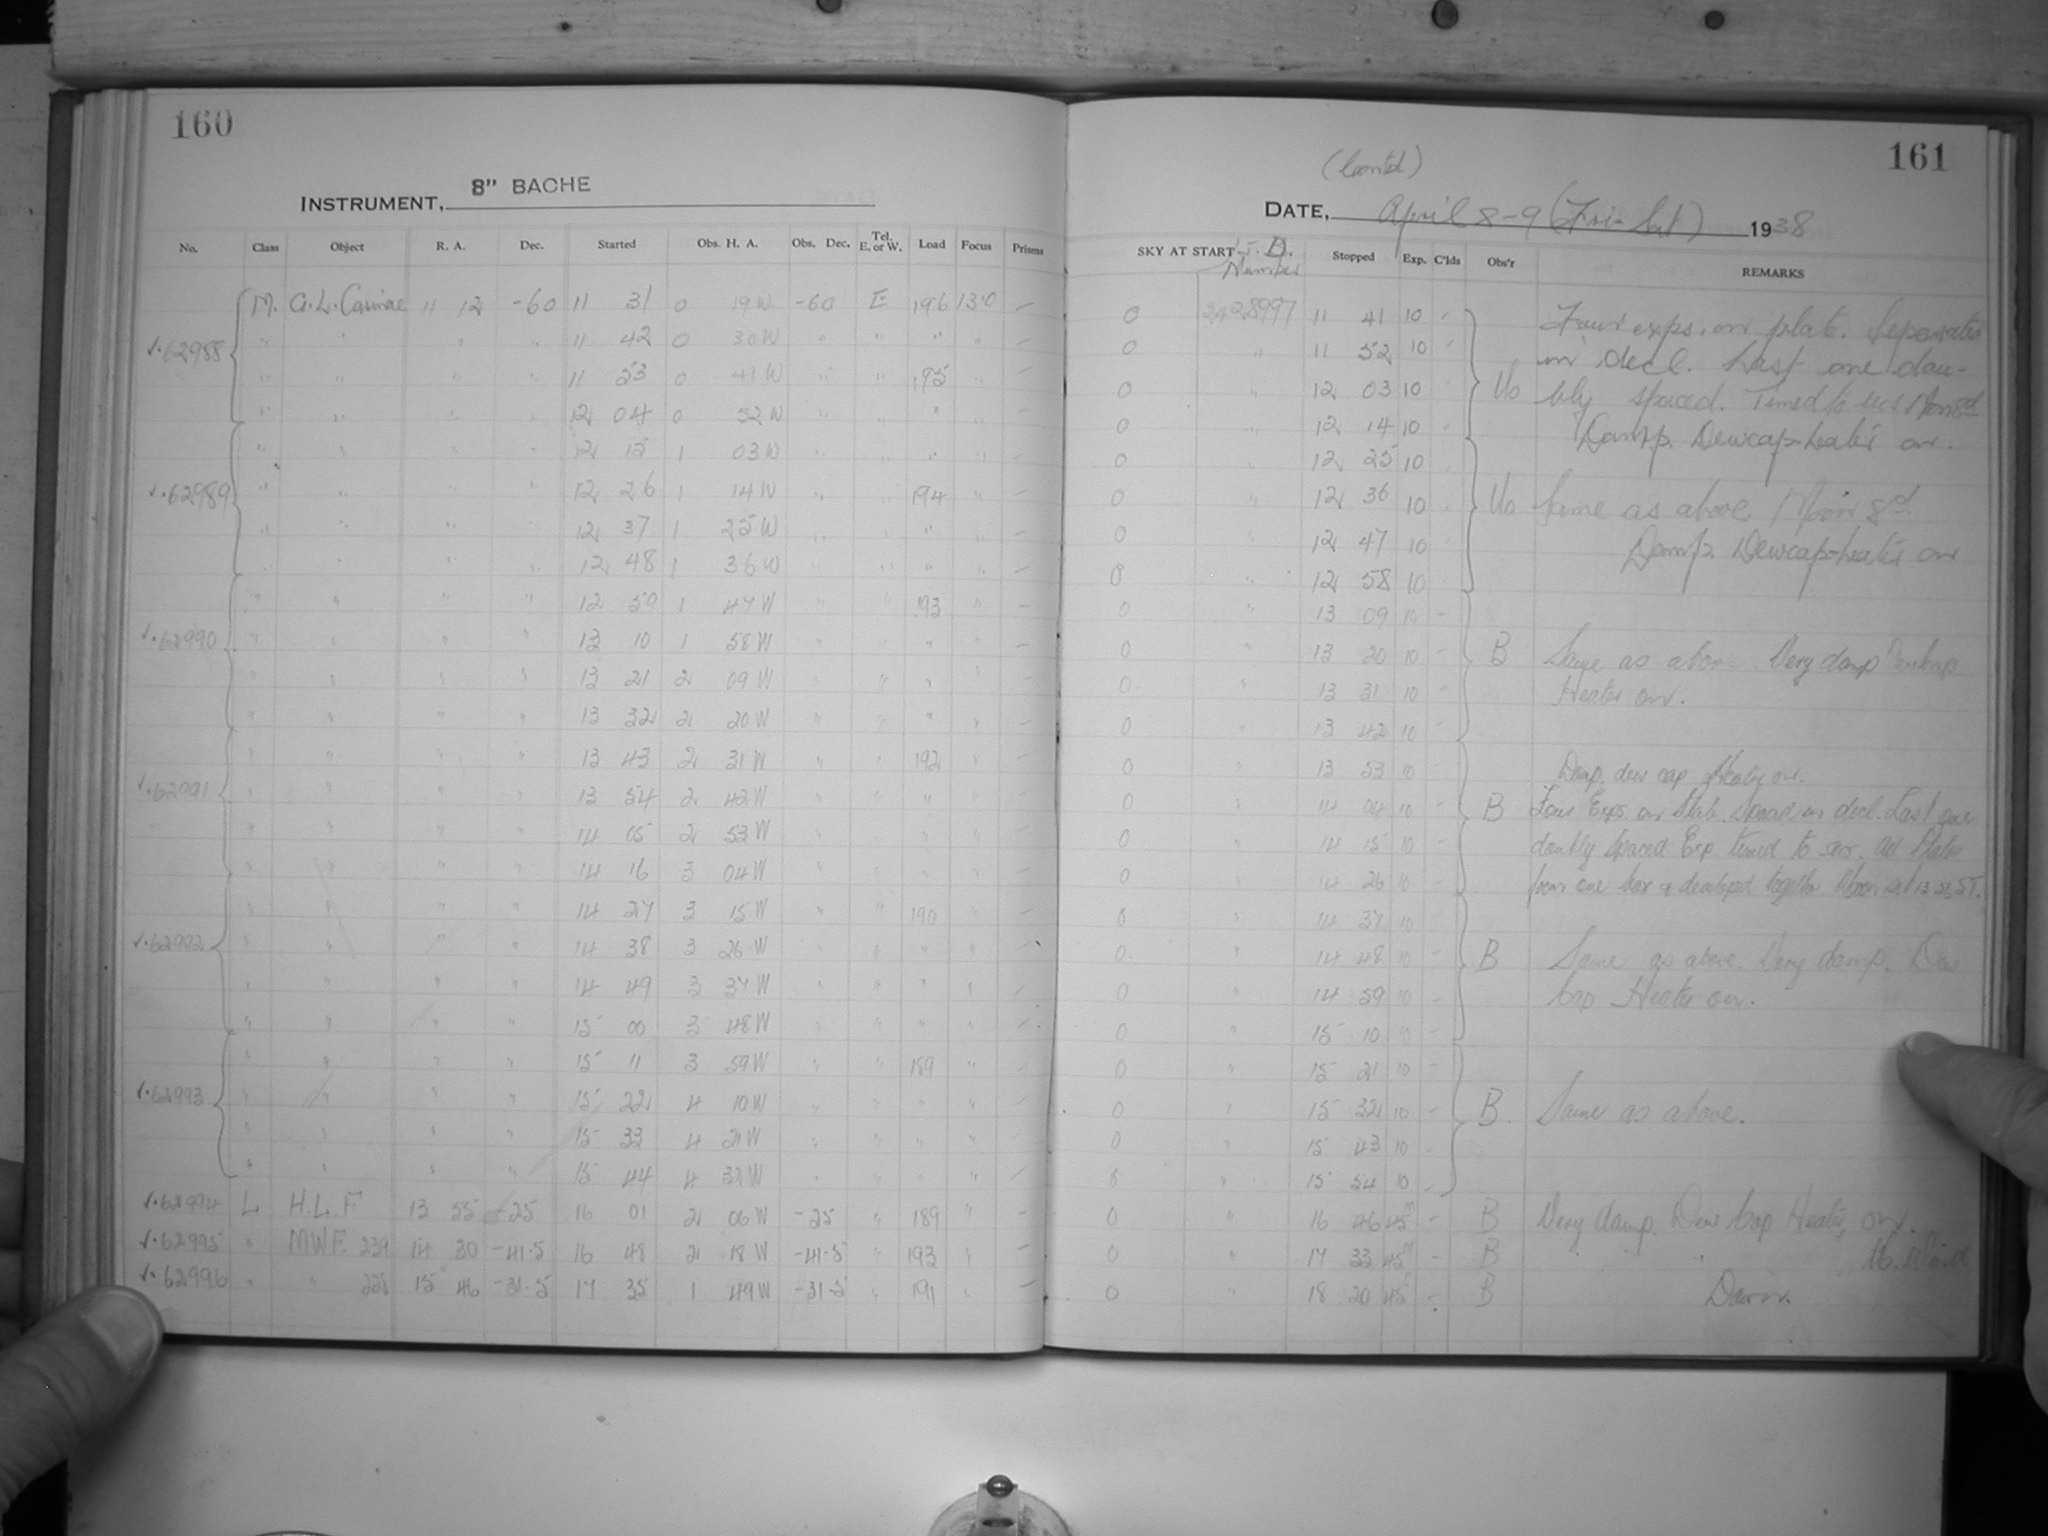 160
8" BACHE
INSTRUMENT,
No. Class Object R. A. Dec. Started Obs. H. A. Obs. Dec. Tel. E. or W. Load Focus Prisms
M. G.L. Carinae 11 12 -60 11 31 0 19 W -60 E 196 13.0 –
√.62988 " " " " 11 42 0 30 W " " " "
" " " " 11 53 0 41 W " " 195 " –
" " " " 12 04 0 52 W " " " "
" " " " 12 15 1 03 W " " " " –
√.62989 " " " " 12 26 1 14 W " " 194 " –
" " " " 12 37 1 25 W " " " " –
" " " " 12 48 1 36 W " " " " –
" " " " 12 59 1 47 W " " 193 " –
√.62990 " " " " 13 10 1 58 W " " " " –
" " " " 13 21 2 09 W " " " " –
" " " " 13 32 2 20 W " " " " –
" " " " 13 43 2 31 W " " 192 " –
√.62991 " " " " 13 54 2 42 W " " " " –
" " " " 14 05 2 53 W " " " "
" " " " 14 16 3 04 W " " " " –
" " " " 14 27 3 15 W " " 190 " –
√.62992 " " " " 14 38 3 26 W " " " " –
" " " " 14 49 3 37 W " " " " –
" " " " 15 00 3 48 W " " " " –
" " " " 15 11 3 59 W " " 189 " –
√.62993 " " " " 15 22 4 10 W " " " " –
" " " " 15 33 4 21 W " " " " –
" " " " 15 44 4 32 W " " " " –
√.62994 L H.L.F. 13 55 -25 16 01 2 06 W -25 " 189 " –
√.62995 " M.W.F. 239 14 30 -41.5 16 48 2 18 W -41.5 " 193 " –
√.62996 " " 228 15 46 -31.5 17 35 1 49 W -31.5 " 191 " –
161
(Contd)
DATE, April 8-9 (Fri-Sat) 1938
SKY AT START J.D. Number Stopped Exp. C'lds Obs'r REMARKS
0 2428997 11 41 10 Four exps. on plate. Separated
0 " 11 52 10 in decl. Last one dou-
0 " 12 03 10 Uo bly spaced. Timed to secs Moon 8d
0 " 12 14 10 Damp. Dewcap-heater on.
0 " 12 25 10
0 " 12 36 10 Uo Same as above Moon 8d.
0 " 12 47 10 Damp. Dewcap-heater on
0 " 12 58 10
0 " 13 09 10 –
0 " 13 20 10 – B Same as above Very damp Dewcap
0 " 13 31 10 – Heater on.
0 " 13 42 10 –
0 " 13 53 10 Damp, dew cap Heater on.
0 " 14 04 10 – B Four Exps. on Plate. Spaced in decl. Last one
0 " 14 15 10 – doubly spaced Exp. timed to secs. All Plates
0 " 14 26 10 from one box & developed together Moon set 13 S.T.
0 " 14 37 10
0 " 14 48 10 – B Same as above. Very damp. Dew
0 " 14 59 10 – Cap Heater on.
0 " 15 10 10 –
0 " 15 21 10 –
0 " 15 32 10 – B. Same as above.
0 " 15 43 10 –
0 " 15 54 10 –
0 " 16 46 45m – B Very damp. Dew Cap Heater on.
0 " 17 33 45m – B " " Wind
0 " 18 20 45 – B Dawn.